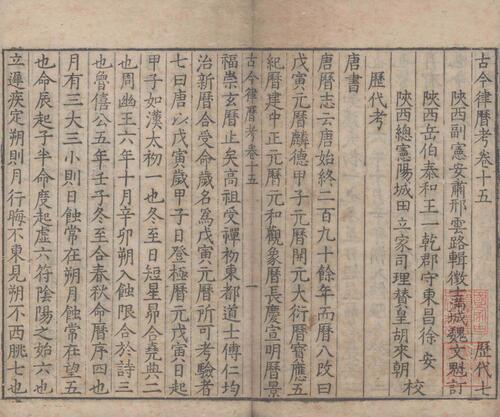 古今律曆考卷十五　歷代七
陝西副憲安肅邢雲路輯　徵士滿城魏文魁訂
陝西岳伯泰和王一乾郡守東昌徐安
陝西總憲陽城田立家司理贊皇胡來朝　校
歷代考
唐書
唐曆志云唐始終二百九十餘年而曆八改曰
戊寅元曆麟德甲子元曆開元大衍曆寶應五
紀曆建中正元曆元和觀象曆長慶宣明曆景
古今律曆考卷十五　一
福崇玄曆止矣高祖受禪初東都道士傅仁均
治新曆合受命歲名爲戊寅元曆所可考驗者
七曰唐以戊寅歲甲子日登極曆元戊寅日起
甲子如漢太初一也冬至日短星昴合堯典二
也周幽王六年十月辛卯朔入蝕限合於詩三
也魯僖公五年壬子冬至合春秋命曆序四也
月有三大三小則日蝕常在朔月蝕常在望五
也命辰起子半命度起虛六符陰陽之始六也
立遲疾定朔則月行晦不東見朔不西朓七也